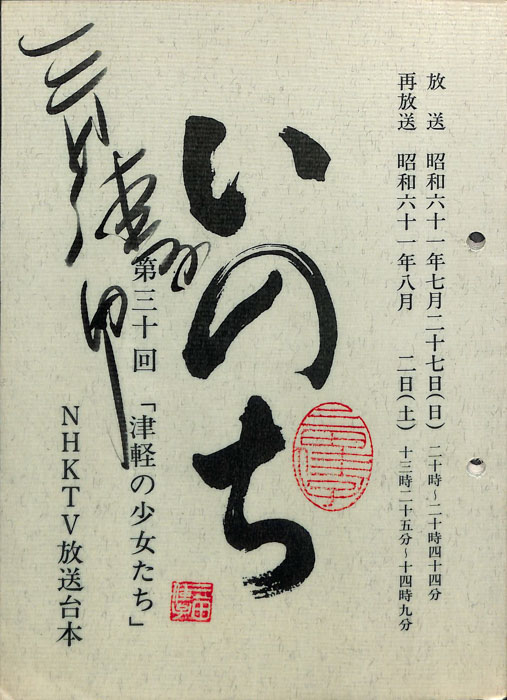 放送 昭和六十一年七月二十七日(日) 二十時~二十時四十四分
再放送 昭和六十一年八月 二日(土) 十三時二十五分~十四時九分
いのち
第三十回 「津軽の少女たち」
NHKTV放送台本